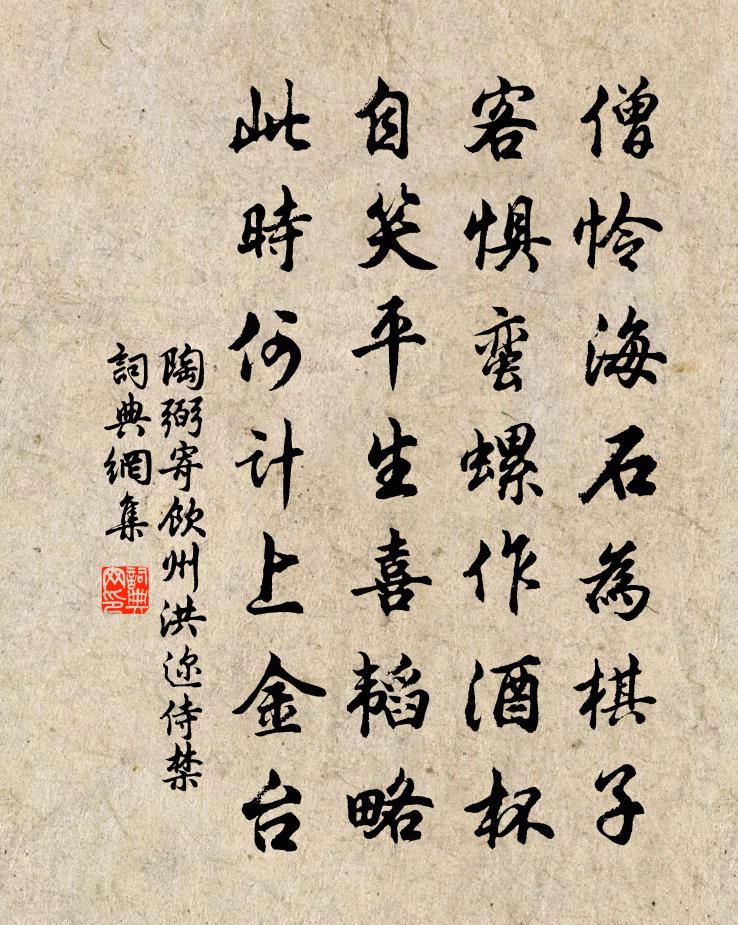 僧怜海石為棋子
客惧蛮螺作酒杯
自笑平生喜韬略
此時何计上金台
陶弼寄钦州洪迩侍禁
詞典網集
詞典网印